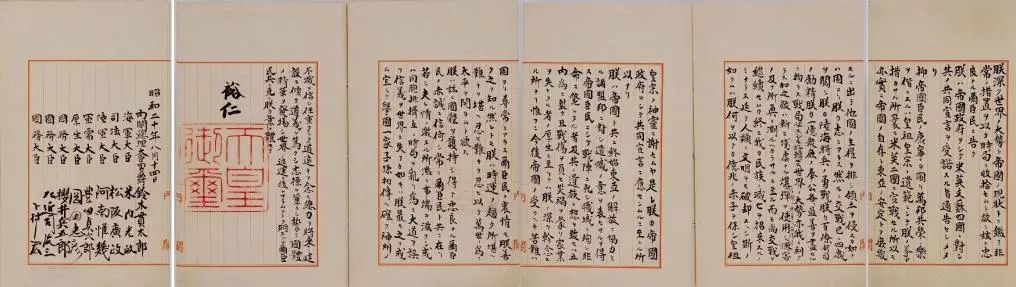 朕深ク世界ノ大勢ト帝國ノ現狀トニ鑑ミ非
常ノ措置ヲ以テ時局ヲ收拾セムト欲シ茲ニ忠
良ナル爾臣民ニ告ク
朕ハ帝國政府ヲシテ米英支蘇四國ニ對シ
其ノ共同宣言ヲ受諾スル旨通告セシメタ
リ
抑〻帝國臣民ノ康寧ヲ圖リ萬邦共榮ノ樂
ヲ偕ニスルハ皇祖皇宗ノ遺範ニシテ朕ノ拳々
措カサル所曩ニ米英二國ニ宣戰セル所以モ
亦實ニ帝國ノ自存ト東亞ノ安定トヲ庶幾
スルニ出テ他國ノ主權ヲ排シ領土ヲ侵スカ如キ
ハ固ヨリ朕カ志ニアラス然ルニ交戰已ニ四歲
ヲ閲シ朕カ陸海將兵ノ勇戰朕カ百僚有司
ノ勵精朕カ一億衆庶ノ奉公各〻最善ヲ盡セルニ
拘ラス戰局必スシモ好轉セス世界ノ大勢亦我ニ利アラ
ス加之敵ハ新ニ殘虐ナル爆彈ヲ使用シテ頻ニ無辜ヲ殺傷シ慘害
ノ及フ所眞ニ測ルヘカラサルニ至ル而モ尚交戰ヲ
繼續セムカ終ニ我カ民族ノ滅亡ヲ招來スルノ
ミナラス延テ人類ノ文明ヲモ破却スヘシ斯ノ
如クムハ朕何ヲ以テカ億兆ノ赤子ヲ保シ皇祖
皇宗ノ神靈ニ謝セムヤ是レ朕カ帝國
政府ヲシテ共同宣言ニ應セシムルニ至レル所
以ナリ
朕ハ帝國ト共ニ終始東亞ノ解放ニ協力セル
諸盟邦ニ對シ遺憾ノ意ヲ表セサルヲ得ス
帝國臣民ニシテ戰陣ニ死シ職域ニ殉シ非
命ニ斃レタル者及其ノ遺族ニ想ヲ致セハ五
內爲ニ裂ク且戰傷ヲ負ヒ災禍ヲ蒙リ家業
ヲ失ヒタル者ノ厚生ニ至リテハ朕ノ深ク軫念ス
ル所ナリ惟フニ今後帝國ノ受クヘキ苦難ハ
固ヨリ尋常ニアラス爾臣民ノ衷情モ朕善
ク之ヲ知ル然レトモ朕ハ時運ノ趨ク所堪ヘ
難キヲ堪ヘ忍ヒ難キヲ忍ヒ以テ萬世ノ爲ニ
太平ヲ開カムト欲ス
朕ハ茲ニ國體ヲ護持シ得テ忠良ナル爾臣
民ノ赤誠ニ信倚シ常ニ爾臣民ト共ニ在リ
若シ夫レ情ノ激スル所濫ニ事端ヲ滋クシ或
ハ同胞排擠互ニ時局ヲ亂リ爲ニ大道ヲ誤リ
信義ヲ世界ニ失フカ如キハ朕最モ之ヲ戒
ム宜シク擧國一家子孫相傳ヘ確ク神州ノ
不滅ヲ信シ任重クシテ道遠キヲ念ヒ總力ヲ將來ノ建
設ニ傾ケ道義ヲ篤クシ志操ヲ鞏クシ誓テ國體
ノ精華ヲ發揚シ世界ノ進運ニ後レサラムコトヲ期スヘシ爾臣
民其レ克ク朕カ意ヲ體セヨ
裕仁
天皇御璽
昭和二十年八月十四日
內閣總理大臣男爵鈴木貫太郎
海軍大臣 米內光政
司法大臣 松阪廣政
陸軍大臣 阿南惟幾
軍需大臣 豐田貞次郎
厚生大臣 岡田忠彥
國務大臣 櫻井兵五郎
國務大臣
國務大臣 下村宏